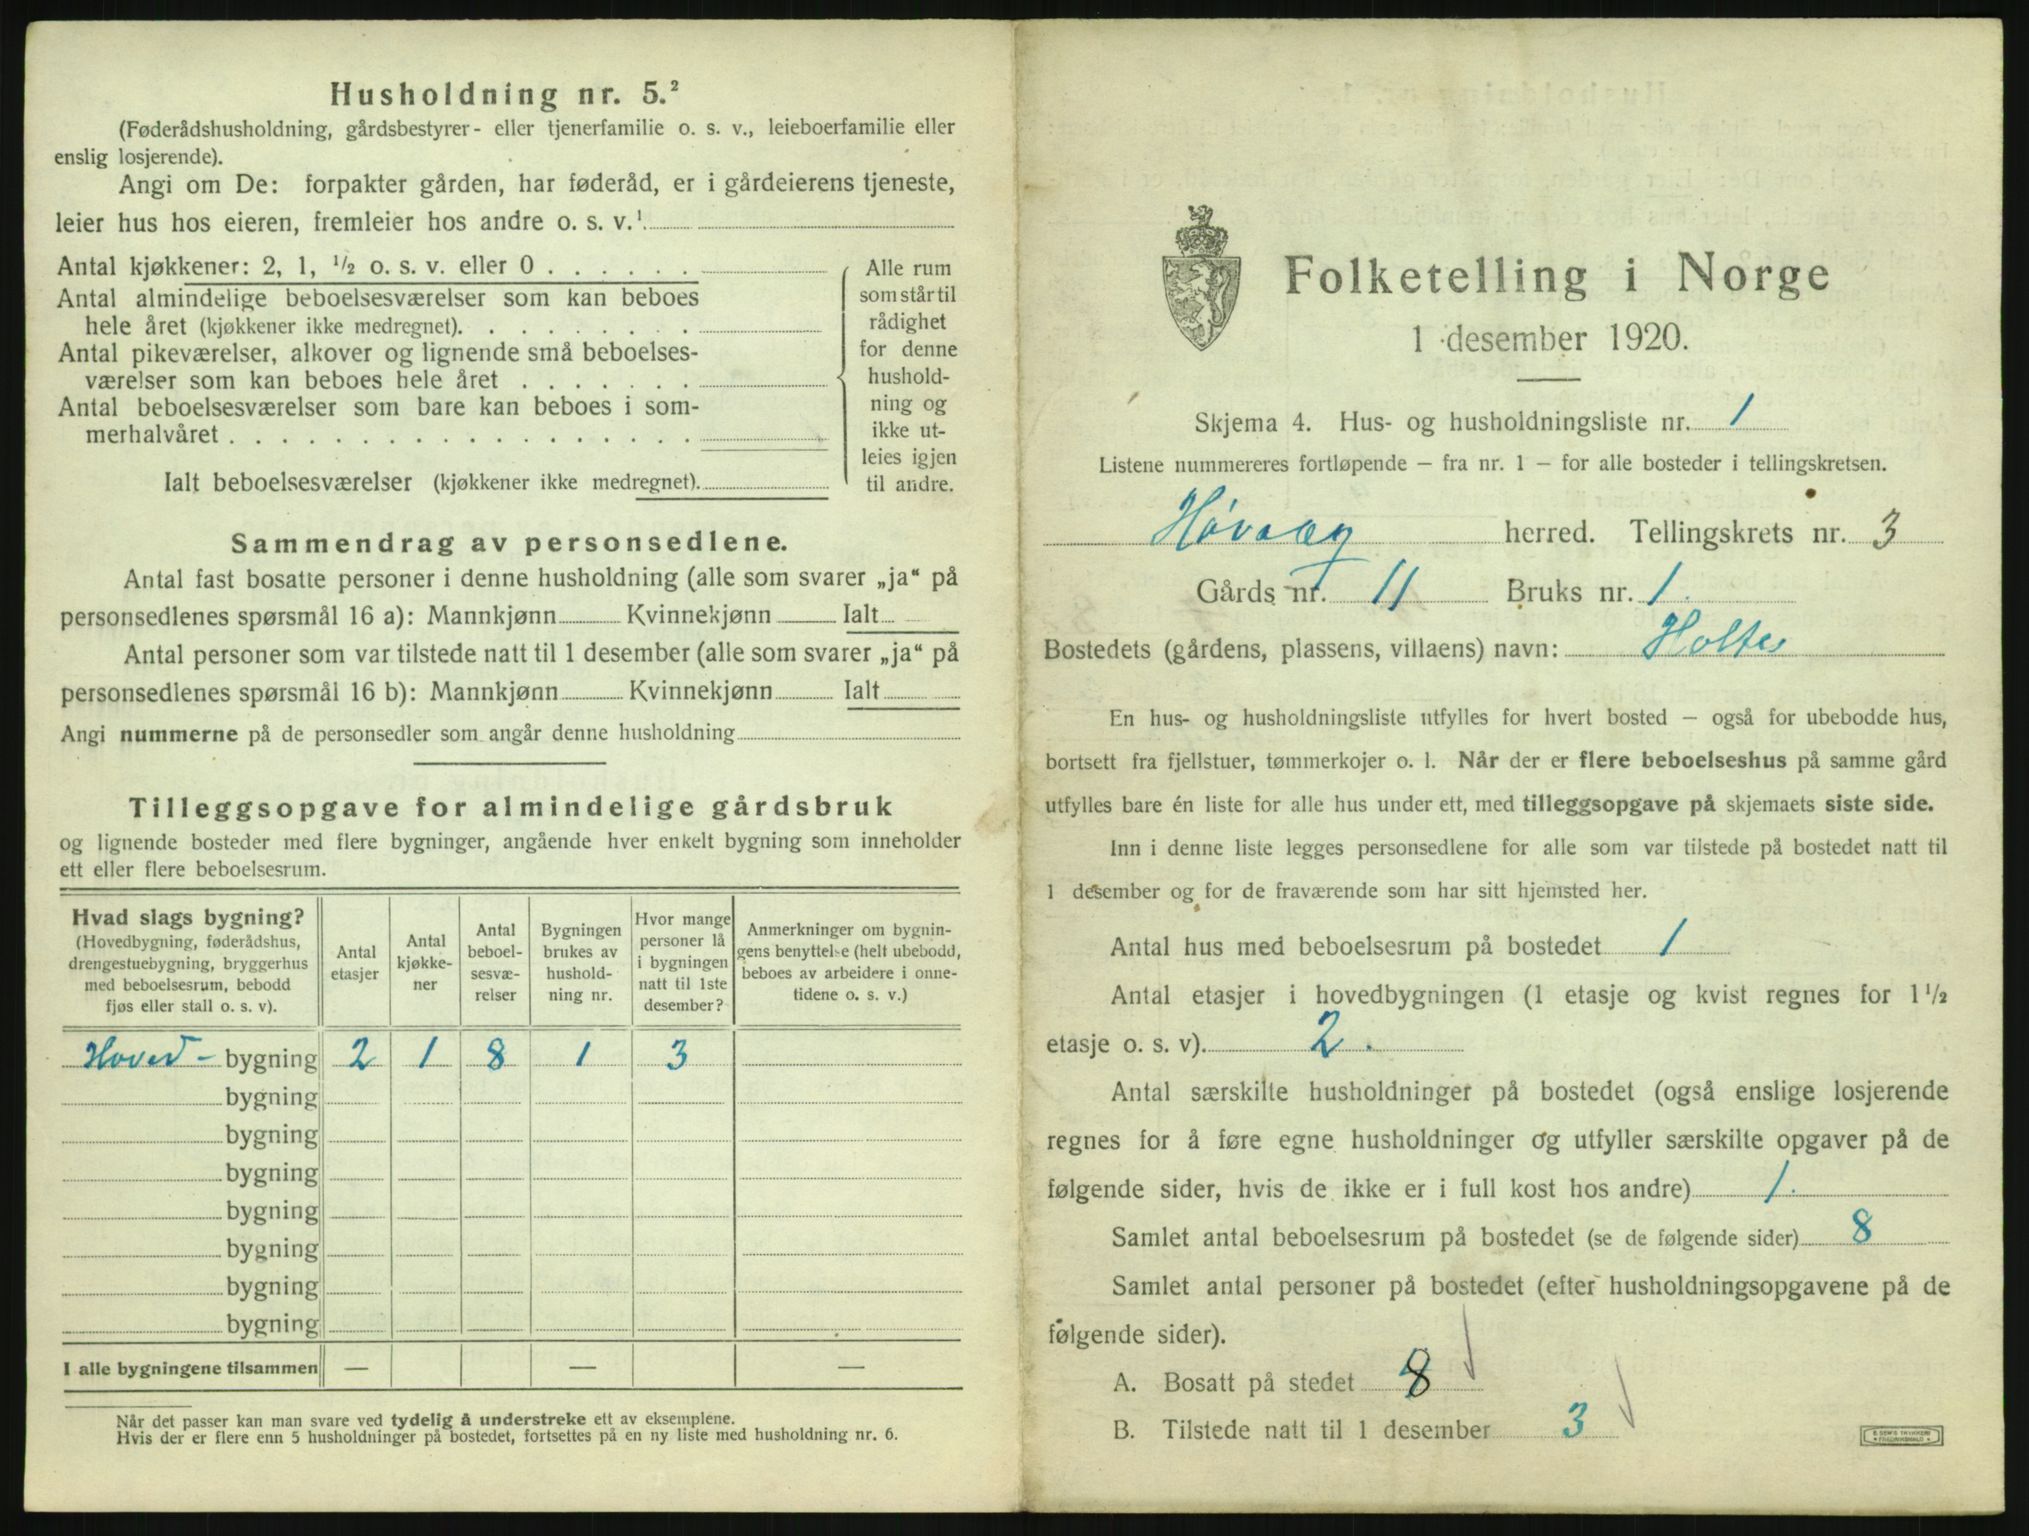 Husholdning nr. 5.²
(Føderådshusholdning, gårdsbestyrer- eller tjenerfamilie o. s. v., leieboerfamilie eller
enslig losjerende).
Angi om De: forpakter gården, har føderåd, er i gårdeierens tjeneste,
leier hus hos eieren, fremleier hos andre o. s. v.¹
Antal kjøkkener: 2, 1, ½ o. s. v. eller 0 . . . . . .
Antal almindelige beboelsesværelser som kan beboes
hele året (kjøkkener ikke medregnet). . . . . . . . .
Antal pikeværelser, alkover og lignende små beboelses-
værelser som kan beboes hele året . . . . . . .
Antal beboelsesværelser som bare kan beboes i som-
merhalvåret . . . . . . . . . . . . . . . . . .
Ialt beboelsesværelser (kjøkkener ikke medregnet).
Alle rum
som står til
rådighet
for denne
hushold-
ning og
ikke ut-
leies igjen
til andre.
Sammendrag av personsedlene.
Antal fast bosatte personer i denne husholdning (alle som svarer „ja“ på
personsedlenes spørsmål 16 a): Mannkjønn Kvinnekjønn Ialt
Antal personer som var tilstede natt til 1 desember (alle som svarer „ja“ på
personsedlenes spørsmål 16 b): Mannkjønn Kvinnekjønn Ialt
Angi nummerne på de personsedler som angår denne husholdning
Tilleggsopgave for almindelige gårdsbruk
og lignende bosteder med flere bygninger, angående hver enkelt bygning som inneholder
ett eller flere beboelsesrum.
Hvad slags bygning?
(Hovedbygning, føderådshus,
drengestuebygning, bryggerhus
med beboelsesrum, bebodd
fjøs eller stall o. s. v).
Antal
etasjer
Antal
kjøkke-
ner
Antal
beboel-
sesvæ-
relser
Bygningen
brukes av
hushold-
ning nr.
Hvor mange
personer lå
i bygningen
natt til 1ste
desember?
Anmerkninger om bygnin-
gens benyttelse (helt ubebodd,
beboes av arbeidere i onne-
tidene o. s. v.)
Hoved- bygning 2 1 8 1 3
bygning
bygning
bygning
bygning
bygning
bygning
bygning
I alle bygningene tilsammen — — —
Når det passer kan man svare ved tydelig å understreke ett av eksemplene.
Hvis der er flere enn 5 husholdninger på bostedet, fortsettes på en ny liste med husholdning nr. 6.
Folketelling i Norge
1 desember 1920.
Skjema 4. Hus- og husholdningsliste nr. 1
Listene nummereres fortløpende – fra nr. 1 – for alle bosteder i tellingskretsen.
Høvaag herred. Tellingskrets nr. 3
Gårds nr. 11 Bruks nr. 1.
Bostedets (gårdens, plassens, villaens) navn: Holtes
En hus- og husholdningsliste utfylles for hvert bosted – også for ubebodde hus,
bortsett fra fjellstuer, tømmerkojer o. l. Når der er flere beboelseshus på samme gård
utfylles bare én liste for alle hus under ett, med tilleggsopgave på skjemaets siste side.
Inn i denne liste legges personsedlene for alle som var tilstede på bostedet natt til
1 desember og for de fraværende som har sitt hjemsted her.
Antal hus med beboelsesrum på bostedet 1
Antal etasjer i hovedbygningen (1 etasje og kvist regnes for 1½
etasje o. s. v). 2.
Antal særskilte husholdninger på bostedet (også enslige losjerende
regnes for å føre egne husholdninger og utfyller særskilte opgaver på de
følgende sider, hvis de ikke er i full kost hos andre) 1.
Samlet antal beboelsesrum på bostedet (se de følgende sider) 8
Samlet antal personer på bostedet (efter husholdningsopgavene på de
følgende sider).
A. Bosatt på stedet 8
B. Tilstede natt til 1 desember 3